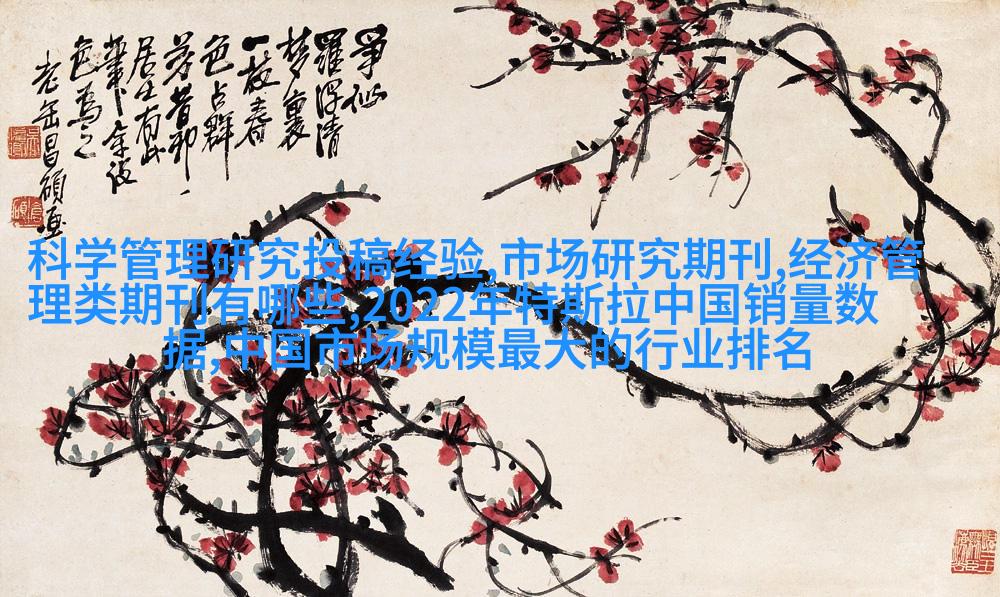 爭似
羅浮清
梦裏
一枝春
色占群
芳昔邪
居士有此
筆余
色為之
老缶昌碩畫
科学管理研究投稿经验,市场研究期刊,经济管
理类期刊有哪些,2022年特斯拉中国销量数
据,中国市场规模最大的行业排名